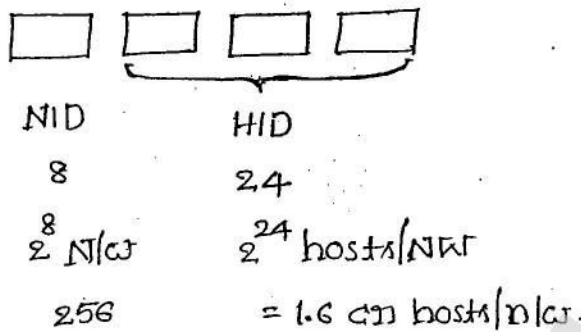 NID HID
8 24
2^8 N/w 2^24 hosts/NW
256 = 1.6 cr hosts/n/w.